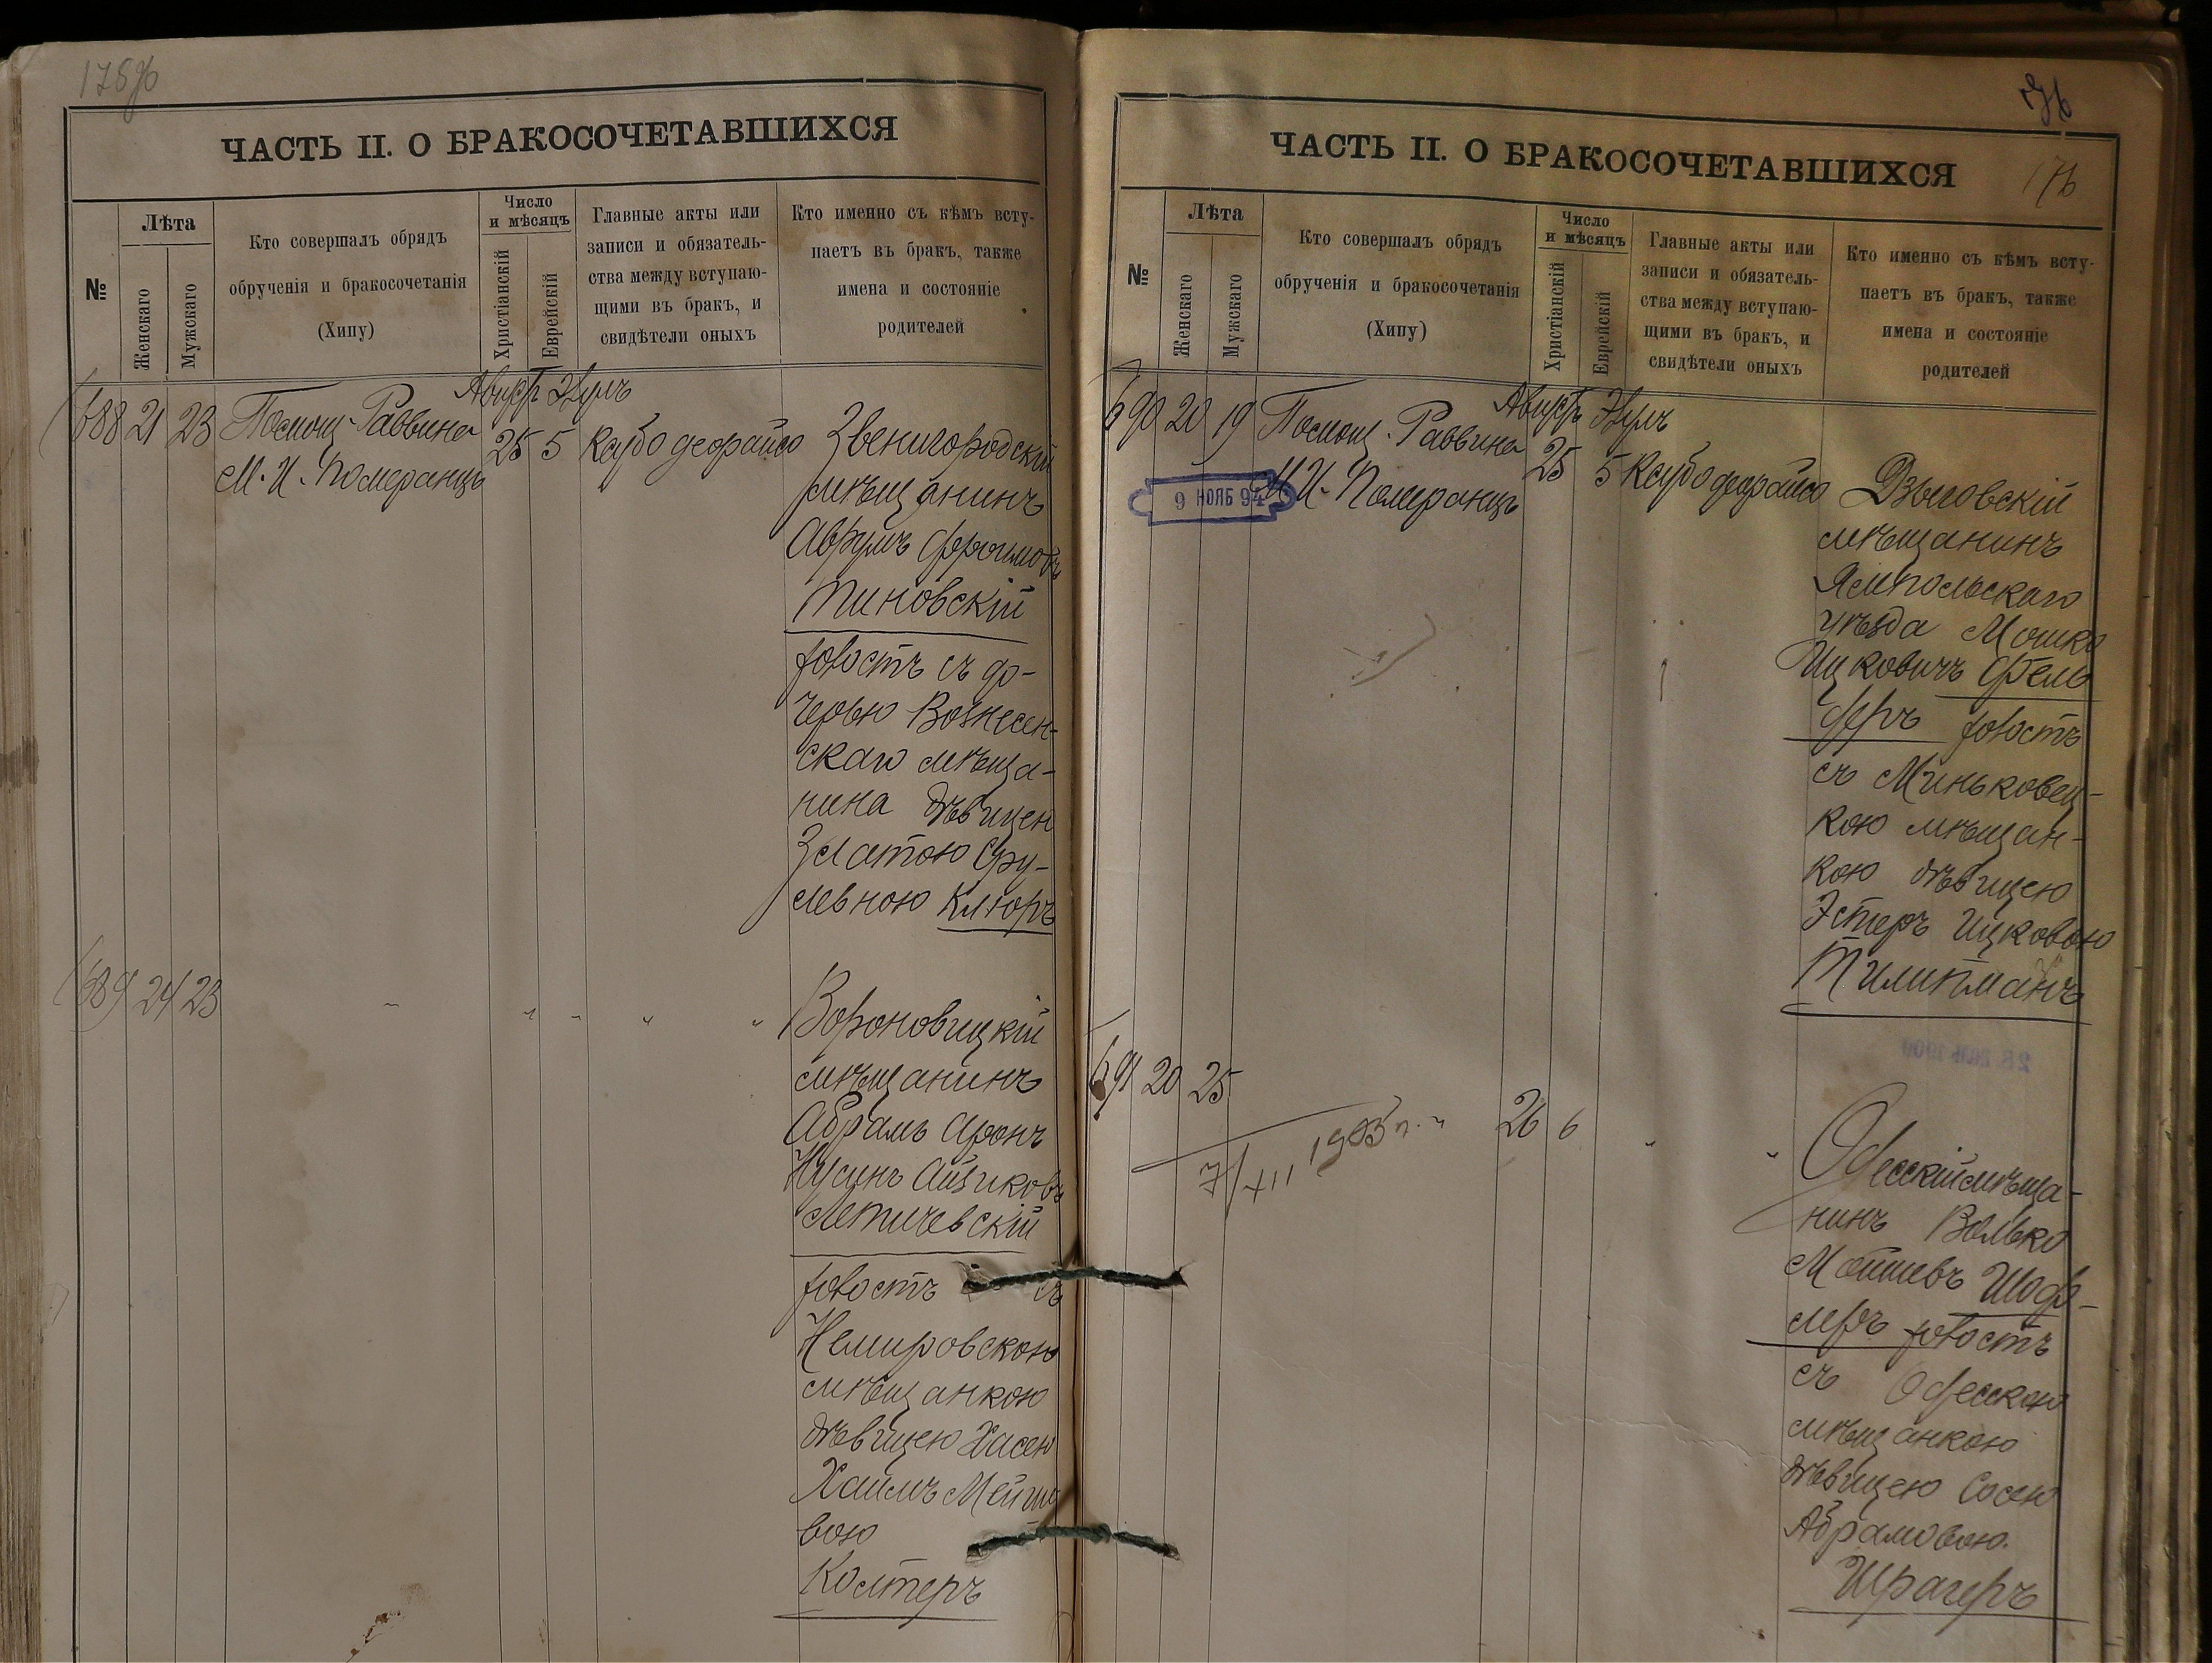 175об
ЧАСТЬ II. О БРАКОСОЧЕТАВШИХСЯ
№
Лѣта
Женскаго
Мужскаго
Кто совершалъ обрядъ
обрученія и бракосочетанія
(Хипу)
Число
и мѣсяцъ
Христіанскій
Еврейскій
Главные акты или
записи и обязатель-
ства между вступаю-
щими въ бракъ, и
свидѣтели оныхъ
Кто именно съ кѣмъ всту-
паетъ въ бракъ, также
имена и состояніе
родителей
Августъ Элулъ
688 21 23 Помощ. Раввина 25 5 Ксубо деорайсо Звенигородскій
М. И. Померанцъ
мѣщанинъ
Аврумъ Фроимовъ
Тиновскій
холостъ съ до-
черью Вознесен-
скаго мѣща-
нина дѣвицею
Златою Сру-
левною Клюръ
689 24 23 " " " " " Вороновицкій
мѣщанинъ
Абрамъ Аронъ
Нусинъ Айзиковъ
Летичевскій
холостъ съ
Немировскою
мѣщанкою
дѣвицею Хасею
Хаимъ Мейше
вою
Костеръ
176
176
ЧАСТЬ II. О БРАКОСОЧЕТАВШИХСЯ
№
Лѣта
Женскаго
Мужскаго
Кто совершалъ обрядъ
обрученія и бракосочетанія
(Хипу)
Число
и мѣсяцъ
Христіанскій
Еврейскій
Главные акты или
записи и обязатель-
ства между вступаю-
щими въ бракъ, и
свидѣтели оныхъ
Кто именно съ кѣмъ всту-
паетъ въ бракъ, также
имена и состояніе
родителей
Августъ Элулъ
690 20 19 Помощ. Раввина 25 5 Ксубо деорайсо Дзыговскій
9 НОЯБ 94
М. И. Померанцъ
мѣщанинъ
Ямпольскаго
уѣзда Мошко
Ицковичъ Фель
деръ холостъ
съ Миньковец-
кою мѣщан-
кою дѣвицею
Эстеръ Ицковою
Тилипманъ
691 20 25 " 26 6 " " Одесскій мѣща-
7/XII 1903 г.
нинъ Волько
Мошевъ Шоф-
леръ холостъ
съ Одесскою
мѣщанкою
дѣвицею Сосею
Абрамовою
Шрагеръ